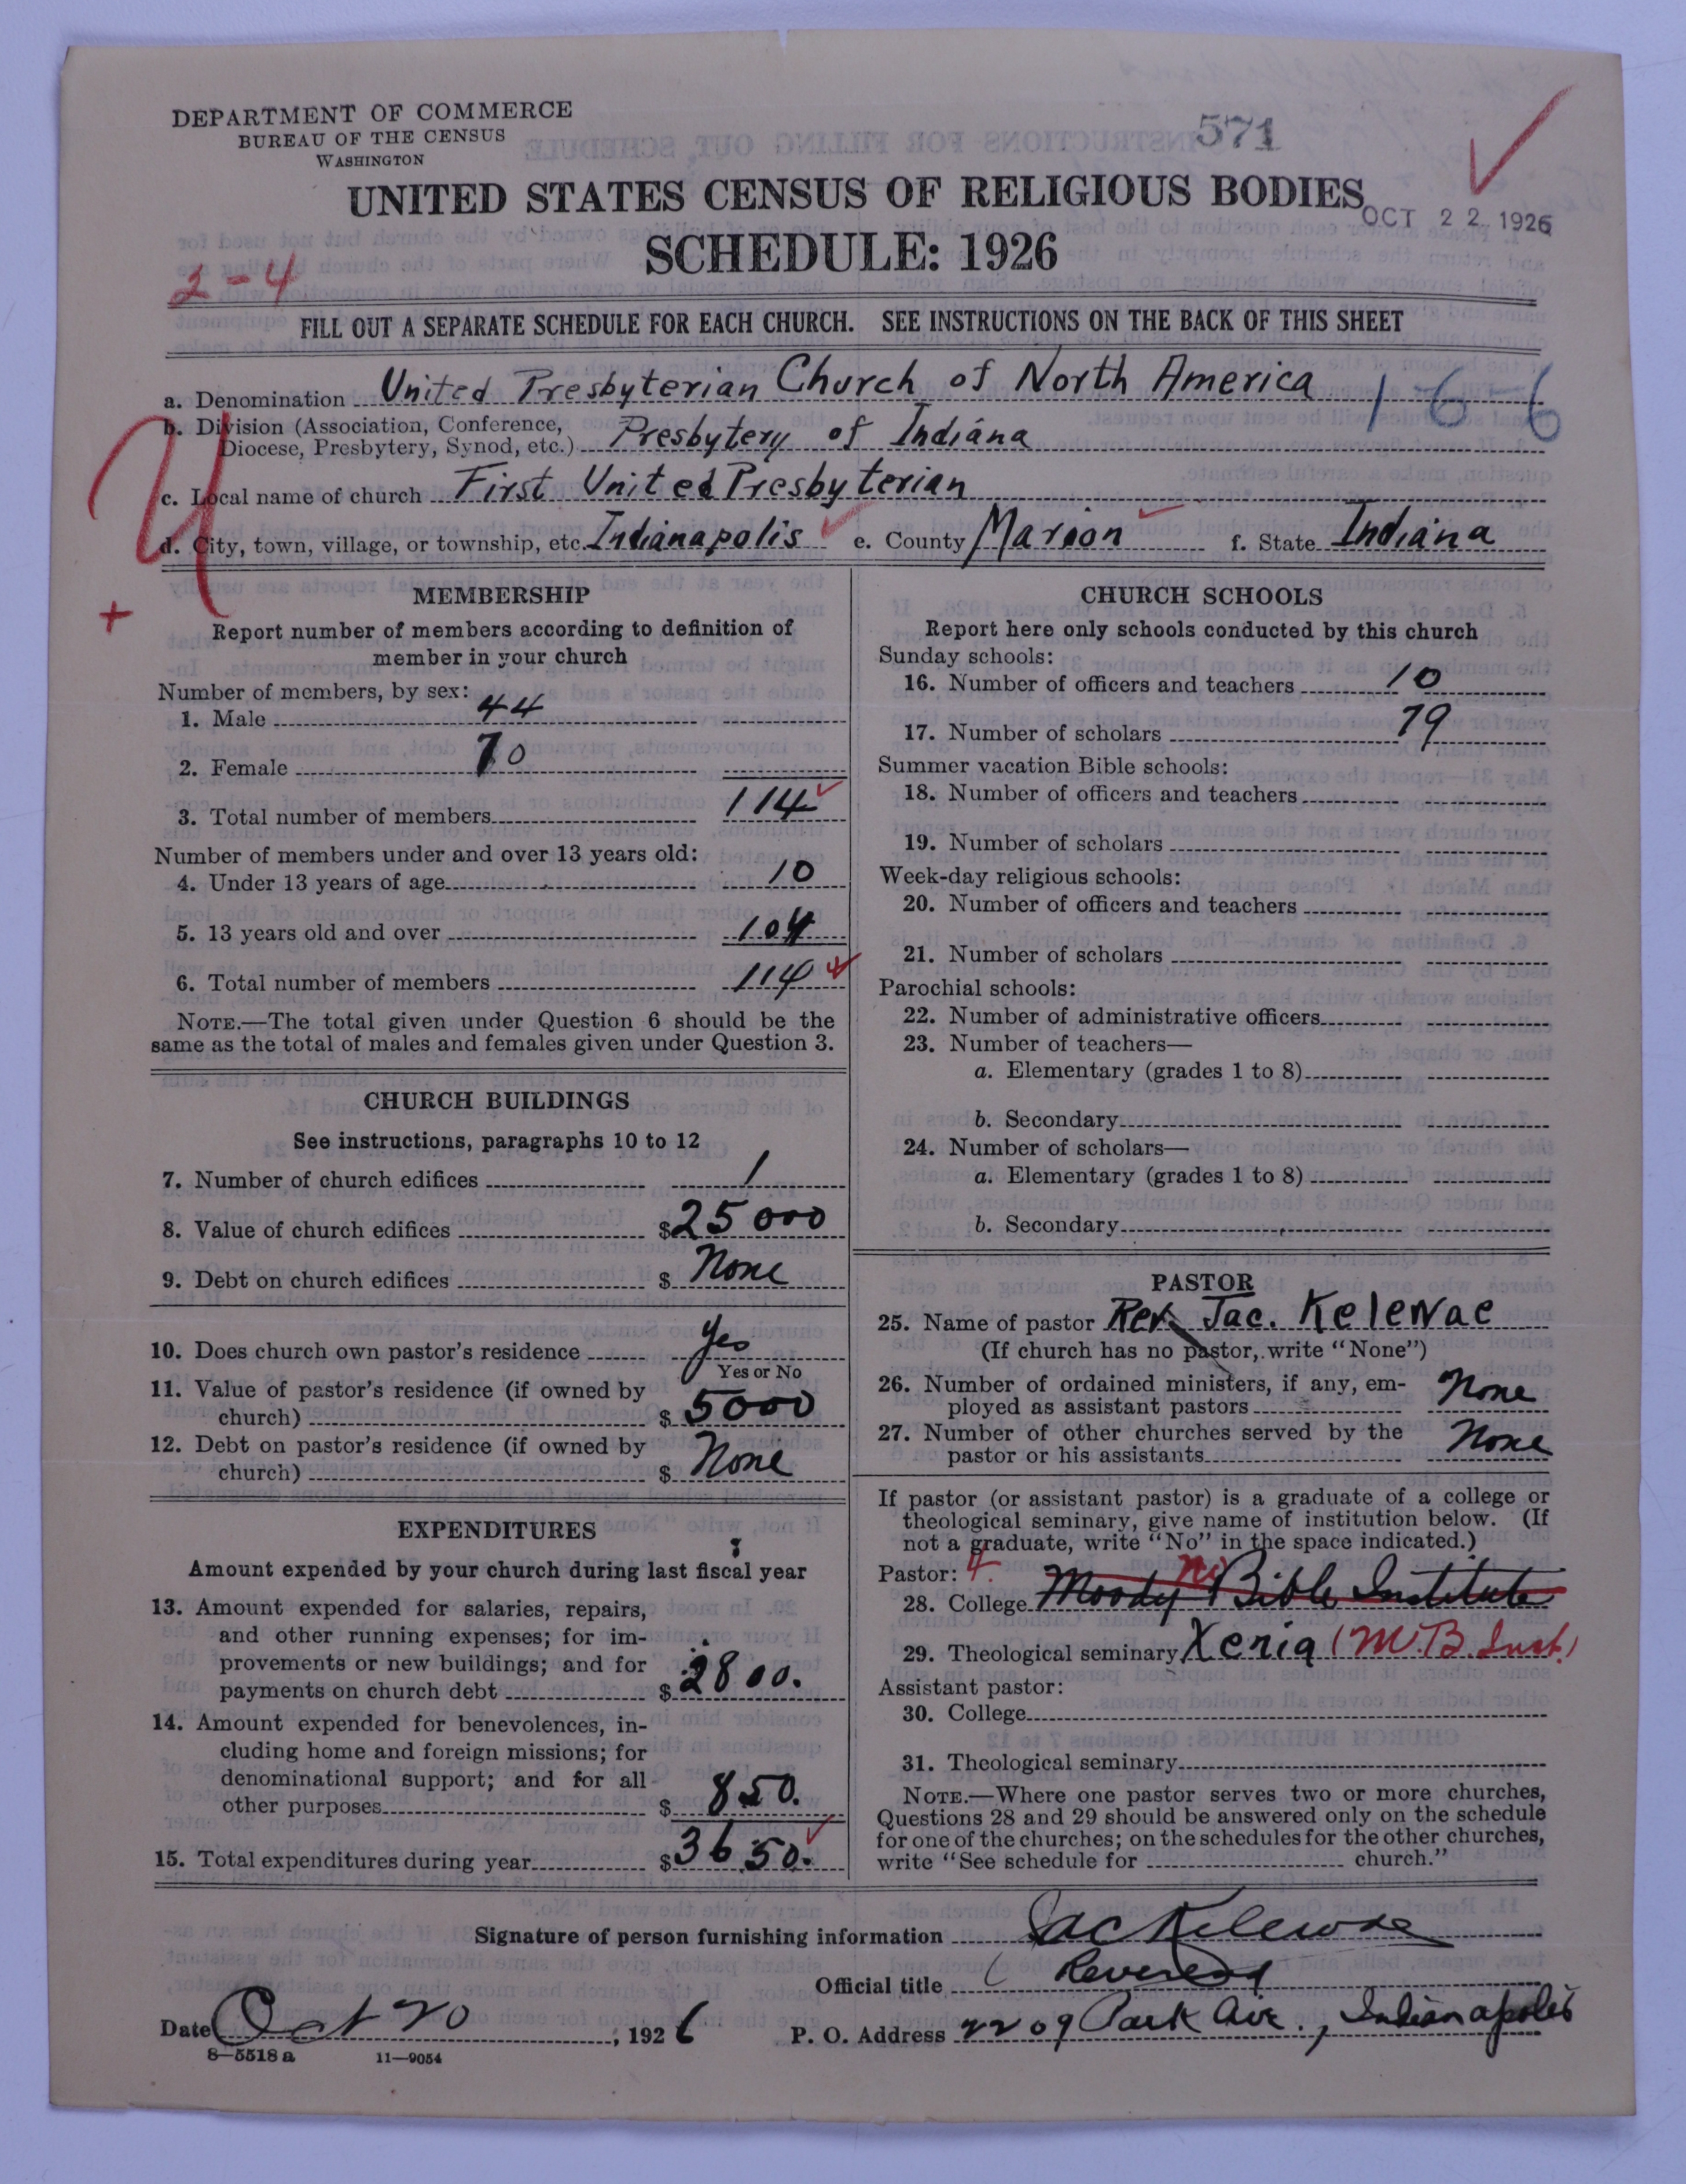 DEPARTMENT OF COMMERCE
BUREAU OF THE CENSUS
WASHINGTON
571
UNITED STATES CENSUS OF RELIGIOUS BODIES
OCT 22 1926
SCHEDULE: 1926
2-4
FILL OUT A SEPARATE SCHEDULE FOR EACH CHURCH. SEE INSTRUCTIONS ON THE BACK OF THIS SHEET
a. Denomination United Presbyterian Church of North America 1-6-6
b. Division (Association, Conference, Diocese, Presbytery, Synod, etc.) Presbytery of Indiana
c. Local name of church First United Presbyterian
d. City, town, village, or township, etc. Indianapolis e. County Marion f. State Indiana
MEMBERSHIP
Report number of members according to definition of
member in your church
Number of members, by sex:
1. Male 44
2. Female 70
3. Total number of members 114
Number of members under and over 13 years old:
4. Under 13 years of age 10
5. 13 years old and over 104
6. Total number of members 114
NOTE.—The total given under Question 6 should be the
same as the total of males and females given under Question 3.
CHURCH BUILDINGS
See instructions, paragraphs 10 to 12
7. Number of church edifices 1
8. Value of church edifices $25000
9. Debt on church edifices $ None
10. Does church own pastor's residence Yes
Yes or No
11. Value of pastor's residence (if owned by
church) $ 5000
12. Debt on pastor's residence (if owned by
church) $ None
EXPENDITURES
Amount expended by your church during last fiscal year
13. Amount expended for salaries, repairs,
and other running expenses; for im-
provements or new buildings; and for
payments on church debt $ 2800.
14. Amount expended for benevolences, in-
cluding home and foreign missions; for
denominational support; and for all
other purposes $ 850.
15. Total expenditures during year $3650.
CHURCH SCHOOLS
Report here only schools conducted by this church
Sunday schools:
16. Number of officers and teachers 10
17. Number of scholars 79
Summer vacation Bible schools:
18. Number of officers and teachers
19. Number of scholars
Week-day religious schools:
20. Number of officers and teachers
21. Number of scholars
Parochial schools:
22. Number of administrative officers
23. Number of teachers—
a. Elementary (grades 1 to 8)
b. Secondary
24. Number of scholars—
a. Elementary (grades 1 to 8)
b. Secondary
PASTOR
25. Name of pastor Rev. Jac. Kelewae
(If church has no pastor, write "None")
26. Number of ordained ministers, if any, em-
ployed as assistant pastors None
27. Number of other churches served by the
pastor or his assistants None
If pastor (or assistant pastor) is a graduate of a college or
theological seminary, give name of institution below. (If
not a graduate, write "No" in the space indicated.)
Pastor: 4. no
28. College Moody Bible Institute
29. Theological seminary Xenia (M.B. Inst.)
Assistant pastor:
30. College
31. Theological seminary
NOTE.—Where one pastor serves two or more churches,
Questions 28 and 29 should be answered only on the schedule
for one of the churches; on the schedules for the other churches,
write "See schedule for church."
Signature of person furnishing information Jac Kelewae
Official title Reverend
Date Oct 20, 1926 P. O. Address 2209 Park Ave., Indianapolis
8—5518 a 11—9054